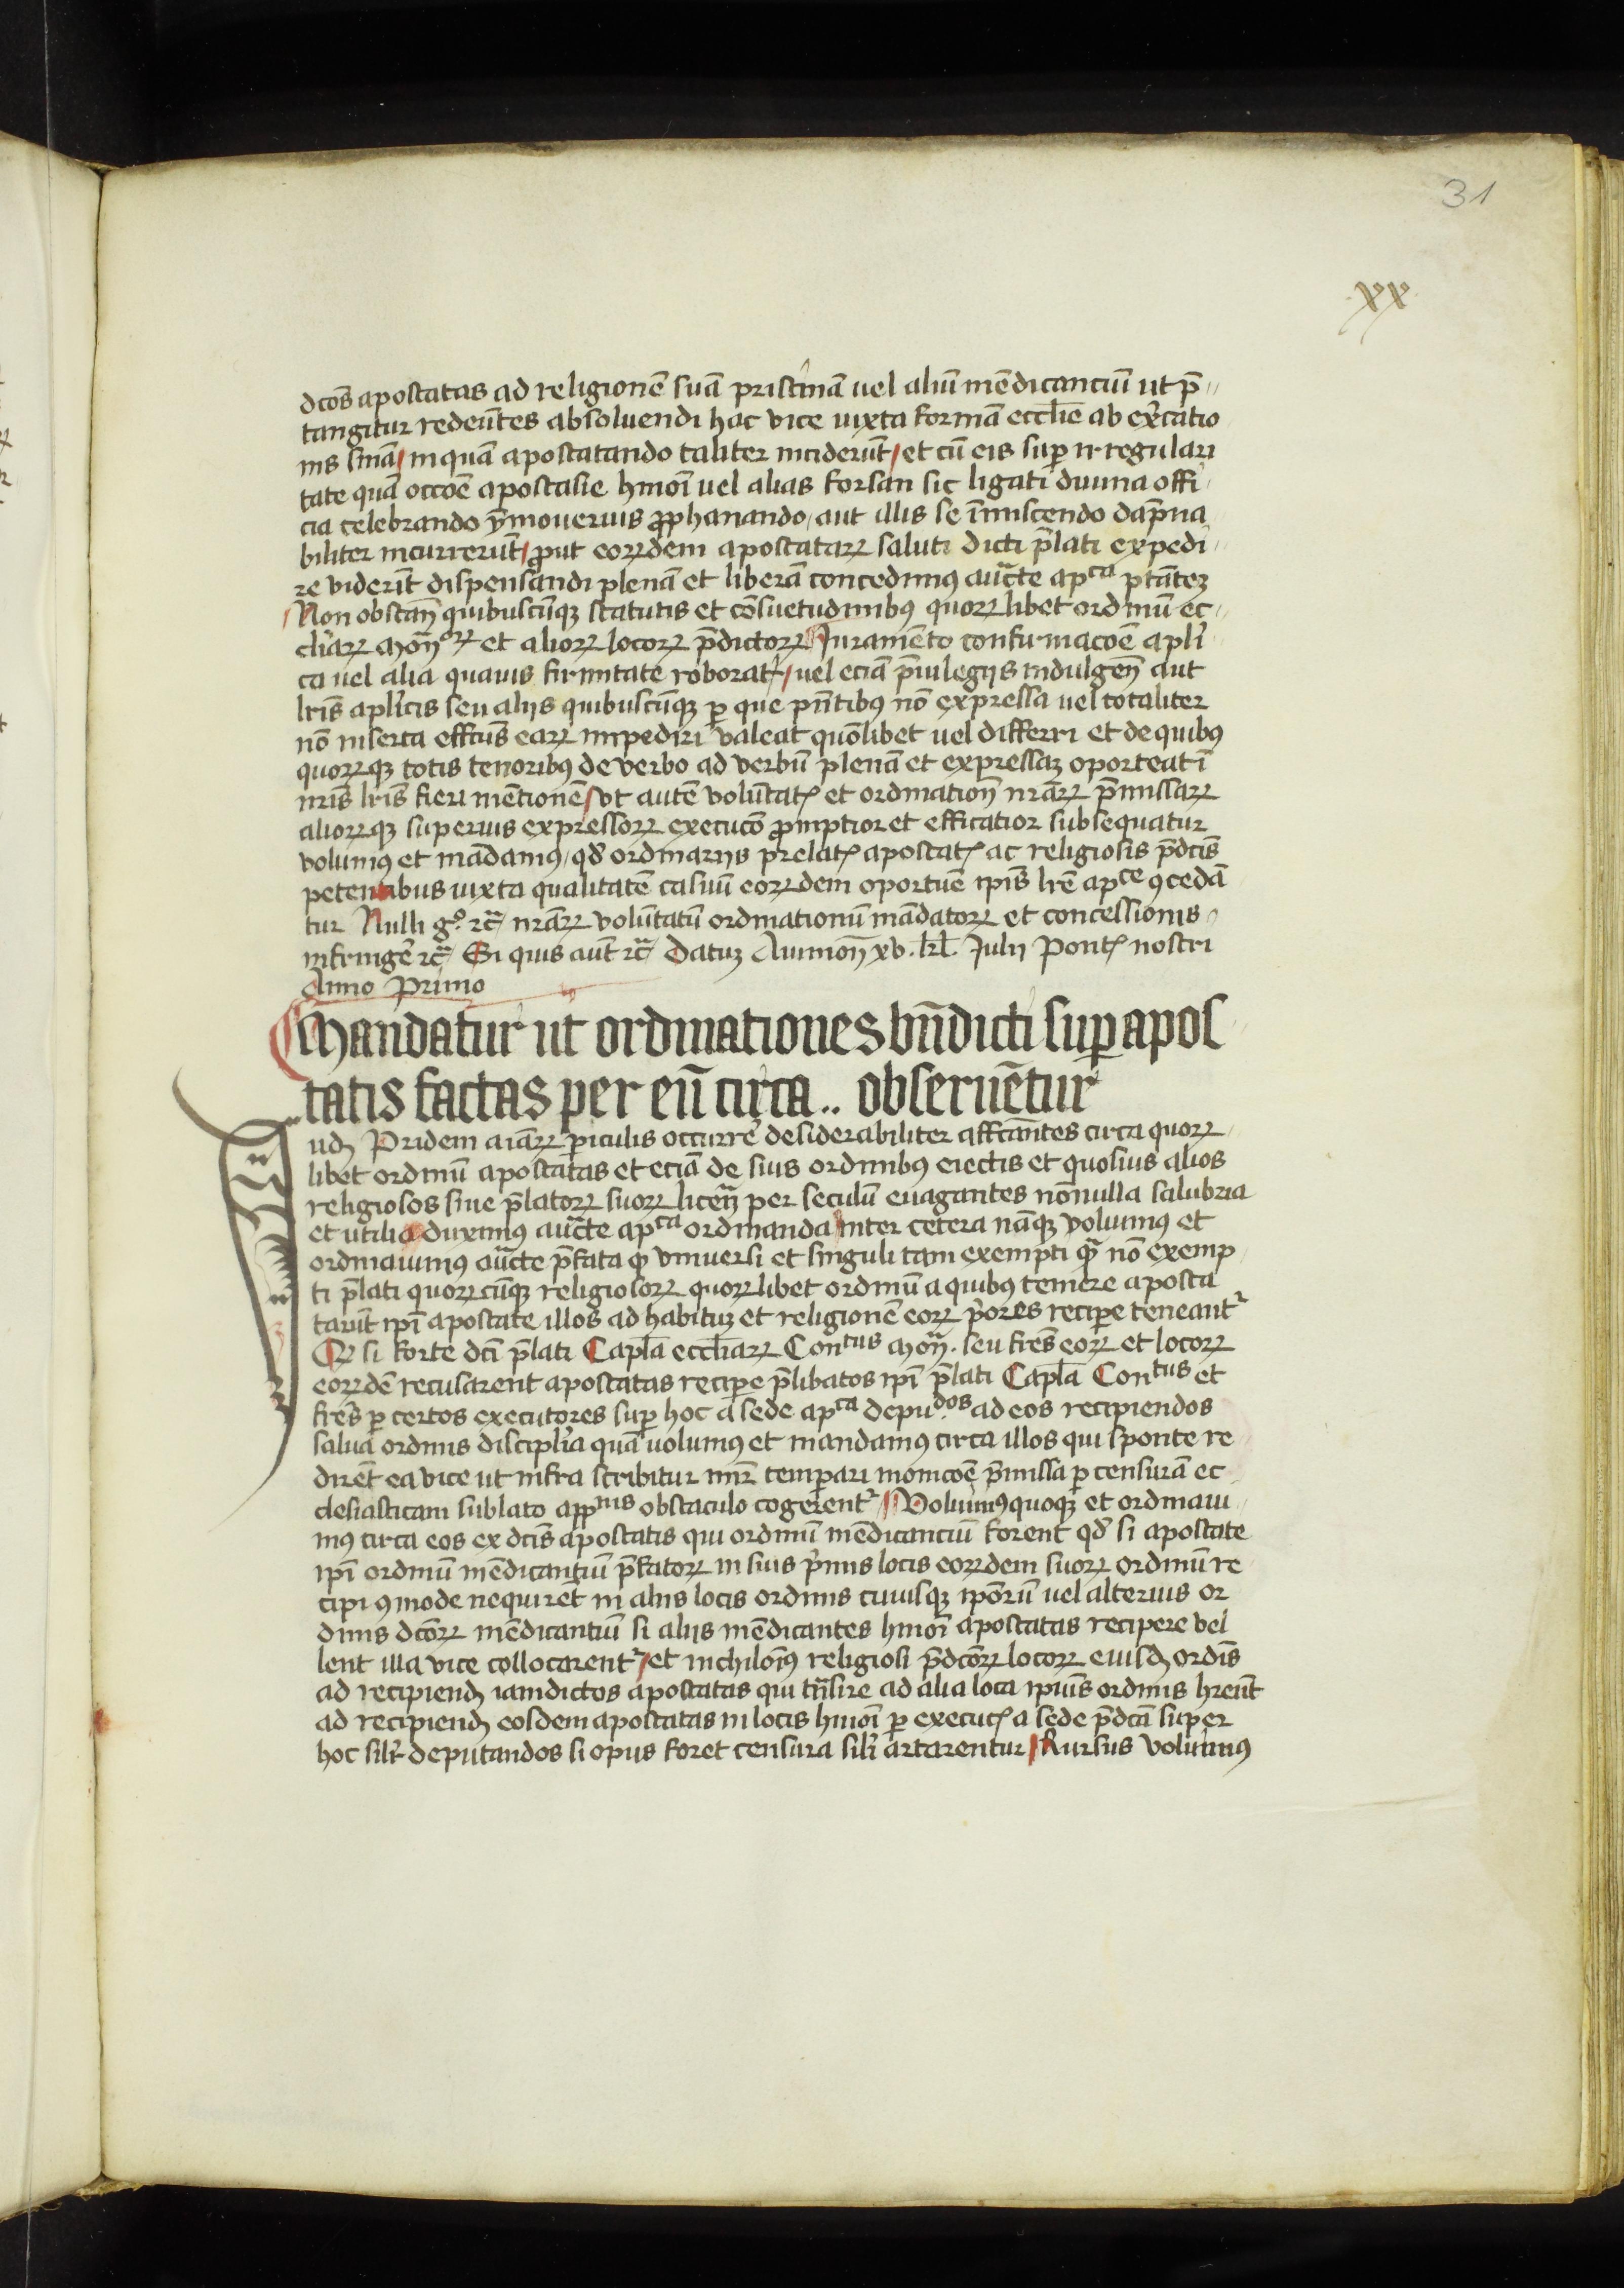 31
xx
dcōs apostatas ad religionē suā pristinā uel aliū mēdicanciū ut p̄
tangitur redeūtes absoluendi hac vice iuxta formā eccl̄ie ab exc̄catio
nis sniā in quā apostatando taliter inciderūt et cū eis suꝑ irregulari
tate quā occōe apostasie hmōi uel alias forsan sic ligati diuina offi
cia celebrando ꝓphanando aut illis se īmiscendo dāpna
biliter incurrerūt ꝓut eorꝝdem apostatarꝝ saluti dicti p̄lati expedi
re viderīt dispensandi plenā et liberā concedimꝰ auc̄te apᶜᵃ ptātez
Non obstan̄ quibuscūqꝫ statutis et cōsuetudinibꝰ quorꝝlibet ordinū ec
cl̄iarꝝ mōn et aliorꝝ locorꝝ p̄dictorꝝ Iuramēto confirmacōe apl̄i
ca uel alia quauis firmitate roborat̄ uel eciā p̄iuilegijs indulgen̄ aut
lr̄is apl̄icis seu alijs quibuscūqꝫ ꝑ que pn̄tibꝰ nō expressa uel totaliter
nō inserta effcūs earꝝ impediri valeat quōlibet uel differri et de quibꝰ
quorꝝqꝫ totis tenoribꝰ de verbo ad verbū plenā et expressaꝫ oporteat ī
nr̄is lr̄is fieri mētionē vt autē volūtatꝭ et ordination̄ nr̄arꝝ p̄missarꝝ
aliorꝝqꝫ superius expressorꝝ execucō ꝓmptior et efficatior subsequatur
volumꝰ et mādamꝰ qd̄ ordinarijs prelatꝭ apostatꝭ ac religiosis p̄dcīs
petentibus iuxta qualitatē casuū eorꝝdem oportūe ip̄is lr̄e apᶜᵉ ꝯcedā
tur Nulli gᵒ ꝛc̄ nr̄arꝝ volūtatū ordinationū mādatorꝝ et concessionis
infringe᷑ ꝛc̄ Si quis aūt ꝛc̄ Datuꝫ Auinion̄ xv. kl̄. Julij Pontꝭ nostri
Anno Primo
Mandatur ut ordinationes bn̄dicti suꝑ apos
tatis factas per eū circa .. obseruētur
udꝫ Pridem aīarꝝ ꝑiculis occurre᷑ desiderabiliter affctātes circa quorꝝ
libet ordinū apostatas et eciā de suis ordinibꝰ eiectis et quosuis alios
religiosos sine p̄latorꝝ suorꝝ licen̄ per seculū euagantes nōnulla salubria
et utilia duximꝰ auc̄te apᶜᵃ ordinanda inter cetera nāqꝫ voluimꝰ et
ordinauimꝰ auc̄te p̄fata ꝙ vniuersi et singuli tam exempti qᵃ̄ nō exemp
ti p̄lati quorꝝcūqꝫ religiosorꝝ quorꝝlibet ordinū a quibꝰ temere aposta
tarūt ip̄i apostate illos ad habituꝫ et religionē eorꝝ p̄ores reciꝑe teneant᷑
Qꝫ si forte dc̄i p̄lati Capl̄a eccl̄iarꝝ Conᵗᵘˢ mōn̄. seu fr̄es eorꝝ et locorꝝ
eorꝝdē recusarent apostatas reciꝑe p̄libatos ip̄i p̄lati Capl̄a Conᵗᵘˢ et
fr̄es ꝑ certos executores suꝑ hoc a sede apᶜᵃ depuᵈᵒˢ ad eos recipiendos
salua ordinis discipl̄ia quā uolumꝰ et mandamꝰ circa illos qui sponte re
dirēt ea vice ut infra scribitur mīr temꝑari monicōe p̄missa ꝑ censurā ec
clesiasticam sublato appⁿⁱˢ obstaculo cogerent᷑ Voluimꝰ quoqꝫ et ordinaui
mꝰ circa eos ex dcīs apostatis qui ordinū mēdicanciū forent qd̄ si apostate
ip̄i ordinū mēdicantiū p̄fatorꝝ in suis p̄miis locis eorꝝdem suorꝝ ordinū re
cipi ꝯmode nequirēt in alijs locis ordinis cuiusqꝫ ip̄orū uel alterius or
dinis dcōrꝝ mēdicantiū si alijs mēdicantes hmōi apostatas recipere vel
lent illa vice collocarent᷑ et nichilomīꝰ religiosi p̄dcōrꝝ locorꝝ eiusdꝫ ordīs
ad recipiendꝫ iamdictos apostatas qui tn̄sire ad alia loca ipiūs ordinis hr̄ent
ad recipiendꝫ eosdem apostatas in locis hmōi ꝑ executꝭ a sede p̄dcā super
hoc sil̄r deputandos si opus foret censura sil̄i artarentur Rursus voluimꝰ